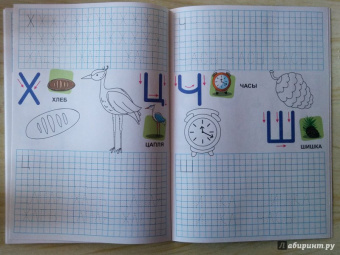 Х
Х
ХЛЕБ
Ц
ЦАПЛЯ
Ч
ЧАСЫ
Ш
ШИШКА
Лабиринт.ру